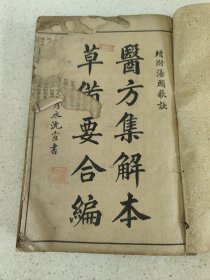 增附湯頭歌訣
醫方集解本
草備要合編
水沈宣書